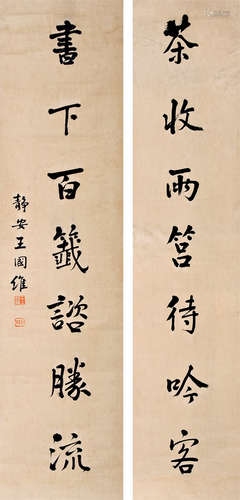 茶收雨筥待吟客
書下百籤諮勝流
靜安王國維